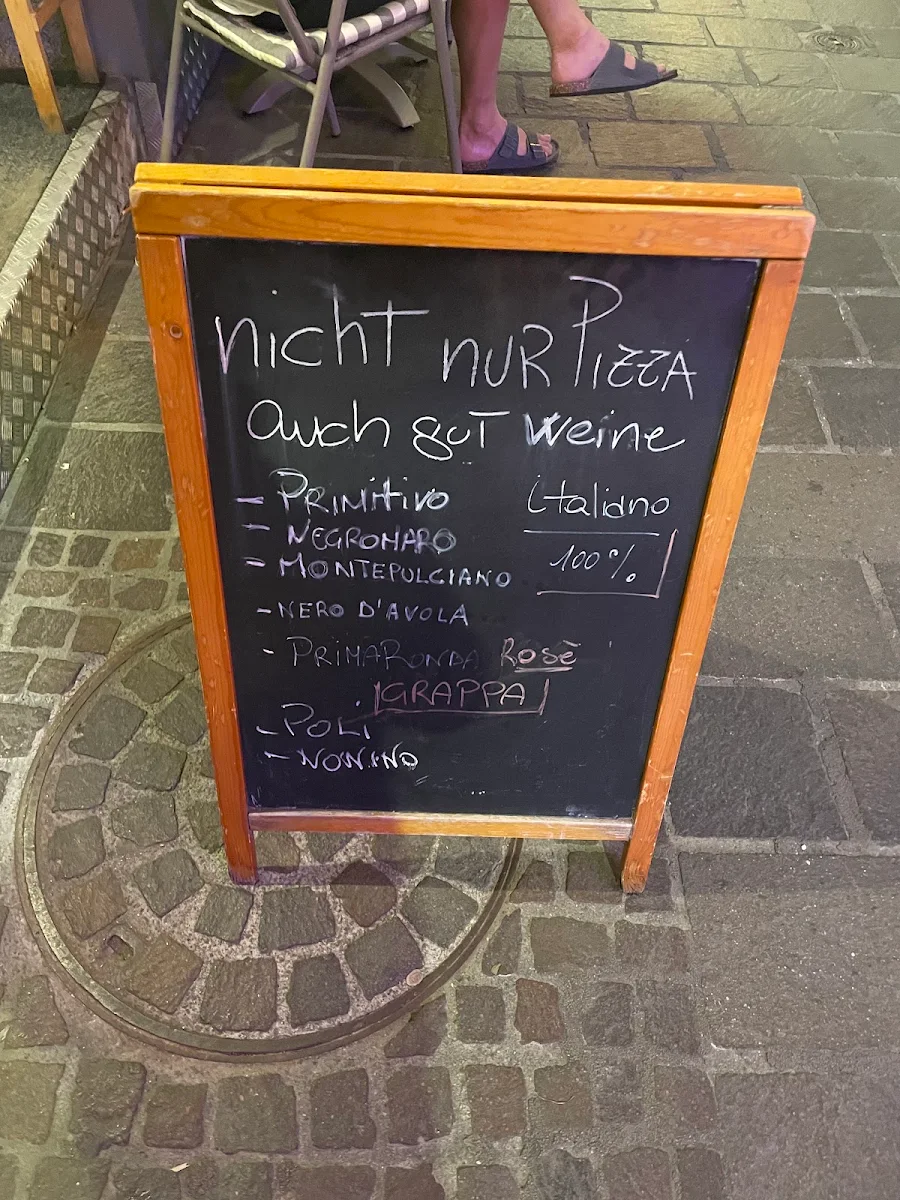 nicht nur Pizza
auch gut weine
- PRIMITIVO
- NEGROMARO
- MONTEPULCIANO
- NERO D'AVOLA
- PRIMARONDA Rosè
italiano
100%
GRAPPA
- POLI
- NONINO